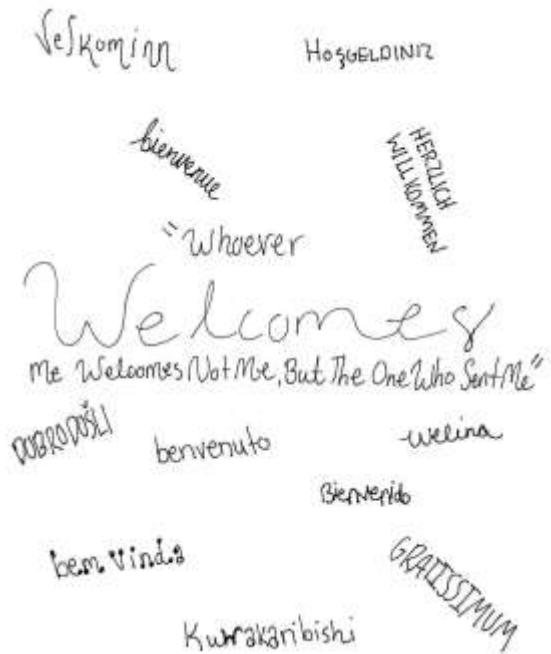 Velkominn
HOŞGELDINIZ
bienvenue
HERZLICH
WILLKOMMEN
"Whoever
Welcomes
Me Welcomes Not Me, But The One Who Sent Me"
DOBRODOŠLI
benvenuto
Welina
Bienvenido
bem vinda
GRATISSIMUM
Kuwakaribishi